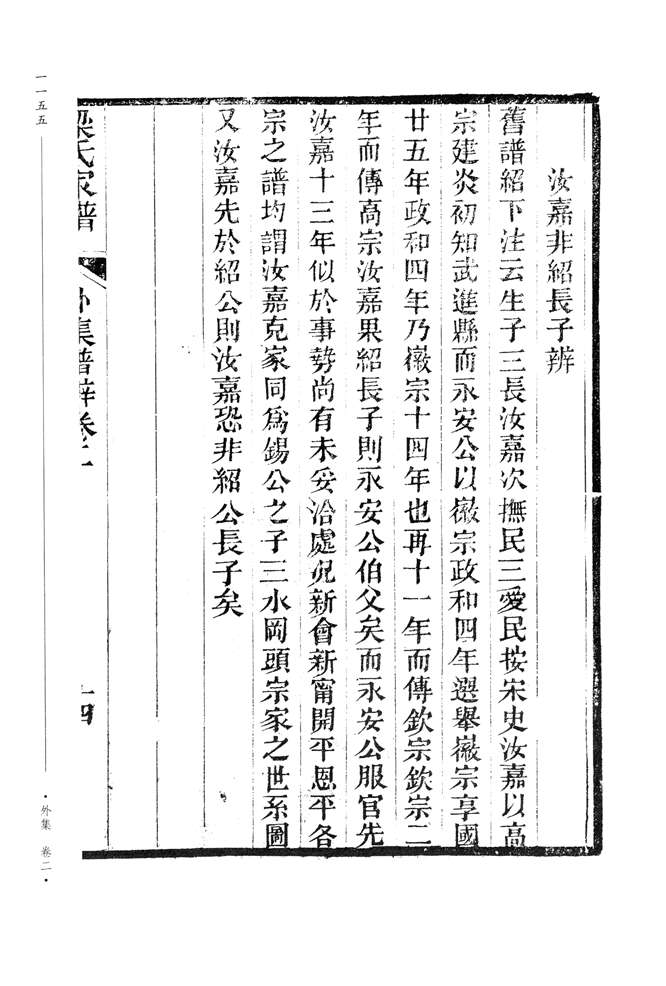 汝嘉非紹長子辨
舊譜紹下注云生子三長汝嘉次撫民三愛民按宋史汝嘉以高
宗建炎初知武進縣而永安公以徽宗政和四年選舉徽宗享國
廿五年政和四年乃徽宗十四年也再十一年而傳欽宗欽宗二
年而傳高宗汝嘉果紹長子則永安公伯父矣而永安公服官先
汝嘉十三年似於事勢尚有未妥洽處況新會新甯開平恩平各
宗之譜均謂汝嘉克家同爲錫公之子三水岡頭宗家之世系圖
又汝嘉先於紹公則汝嘉恐非紹公長子矣
梁氏家譜
外集譜辨卷二
十四
一一五五
·外集 卷二·